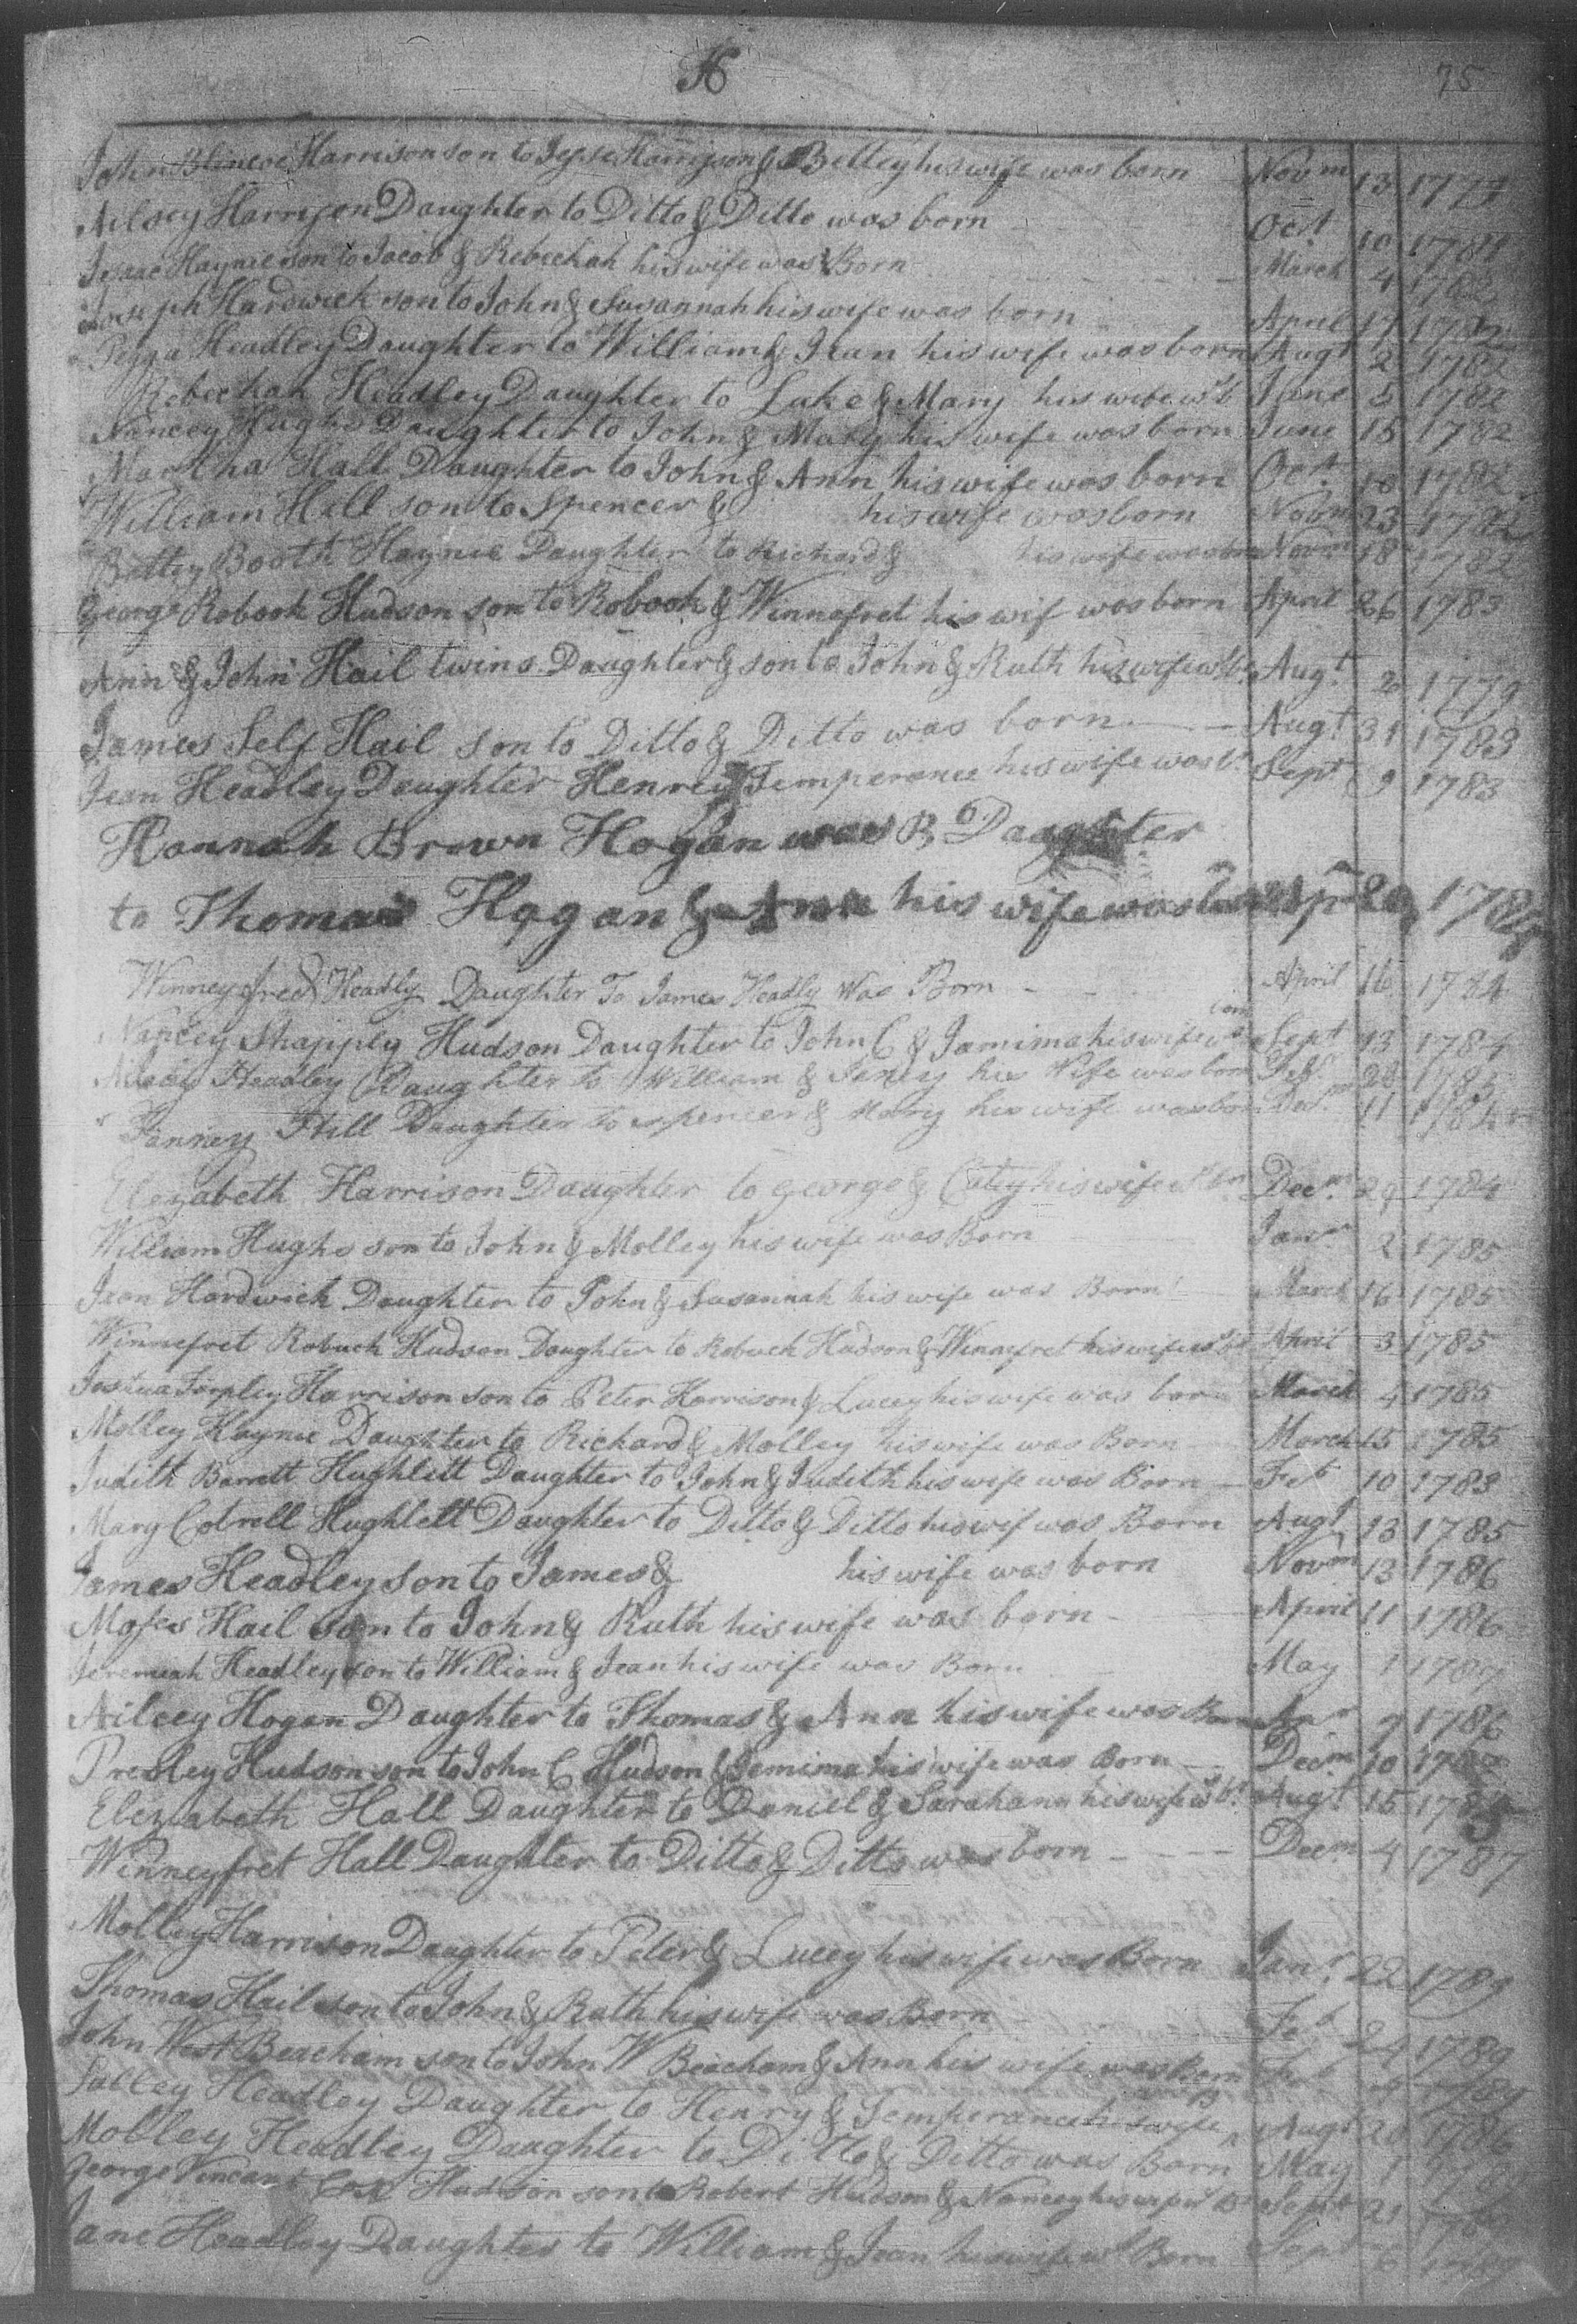 H 75
John Blincoe Harrison son to Jesse Harrison & Bettey his wife was born Novm 13
Ailsey Harrison Daughter to Ditto & Ditto was born Oct 10 1784
Isaac Haynie son to Jacob & Rebeckah his wife was Born March 4 1782
Joseph Hardwick son to John & Susannah his wife was born April 17 1782
Pegga Headley Daughter to William & Jean his wife was born Augt 2 1782
Rebeckah Headley Daughter to Luke & Mary his wife ws b June 8 1782
Nancey Hughs Daughter to John & Mary his wife was born June 15 1782
Martha Hall Daughter to John & Ann his wife was born Oct 10 1782
William Hill son to Spencer & his wife was born Novm 23 1782
Bettey Booth Haynie Daughter to Richard & his wife was born Novm 18 1782
George Robook Hudson son to Robook & Winnefret his wif was born April 26 1783
Ann & John Hail twins Daughter & son to John & Ruth his wife ws b Augt 2 1779
James Self Hail son to Ditto & Ditto was born Augt 31 1783
Jean Headley Daughter Henrey Temperance his wife was b Sept 9 1783
Hannah Brown Hogan was B Daughter
to Thomas Hogan & Ann his wife was
Winneyfred Headly Daughter To James Headly Was Born April 16 1784
Nancey Shapply Hudson Daughter to John C & Jamima his wife ws born Sept 13 1784
Headley Daughter to William & his Wife was born Feb 28 1785
Fanney Hill Daughter to Spencer & Mary his wife was born Decm 11 1784
Elezabeth Harrison Daughter to George & Catey his wife ws bn Decm 29 1784
William Hughs son to John & Molley his wife was Born Janr 2 1785
Jean Hardwick Daughter to John & Susannah his wife was Born March 16 1785
Winnefret Robuck Hudson Daughter to Robuck Hudson & Winnefret his wife ws b April 3 1785
Joshua Tarpley Harrison son to Peter Harrison & Lucey his wife was born March 4 1785
Molley Haynie Daughter to Richard & Molley his wife was Born March 15 1785
Judith Barrett Hughlett Daughter to John & Judith his wife was Born Feb 10 1783
Mary Cotrell Hughlett Daughter to Ditto & Ditto his wif was Born Augt 13 1785
James Headley son to James & his wife was born Novm 13 1786
Moses Hail son to John & Ruth his wife was born April 11 1786
Jeremiah Headley son to William & Jean his wife was Born May 1 1787
Ailcey Hogan Daughter to Thomas & Ann his wife was Born 9 1786
Presley Hudson son to John C Hudson & Jemima his wife was Born Decm 10
Elezabeth Hall Daughter to Daniel & Sarahann his wife ws bn Augt 15 1785
Winneyfret Hall Daughter to Ditto & Ditto was born Decm 4 1787
Molley Harrison Daughter to Peter & Lucey his wife was Born Janr 22 1789
Thomas Hail son to John & Ruth his wife was Born Feb 24 1789
John West Beacham son to John W Beacham & Ann his wife was Born Feb
Salley Headley Daughter to Henry & Temperance his wife was B Augt 20 1786
Molley Headley Daughter to Ditto & Ditto was Born May 1
George Vincant Cox Hudson son to Robert Hudson & Nancey his wife w B Sept 21
Jane Headley Daughter to William & Jean his wife ws Born Sep